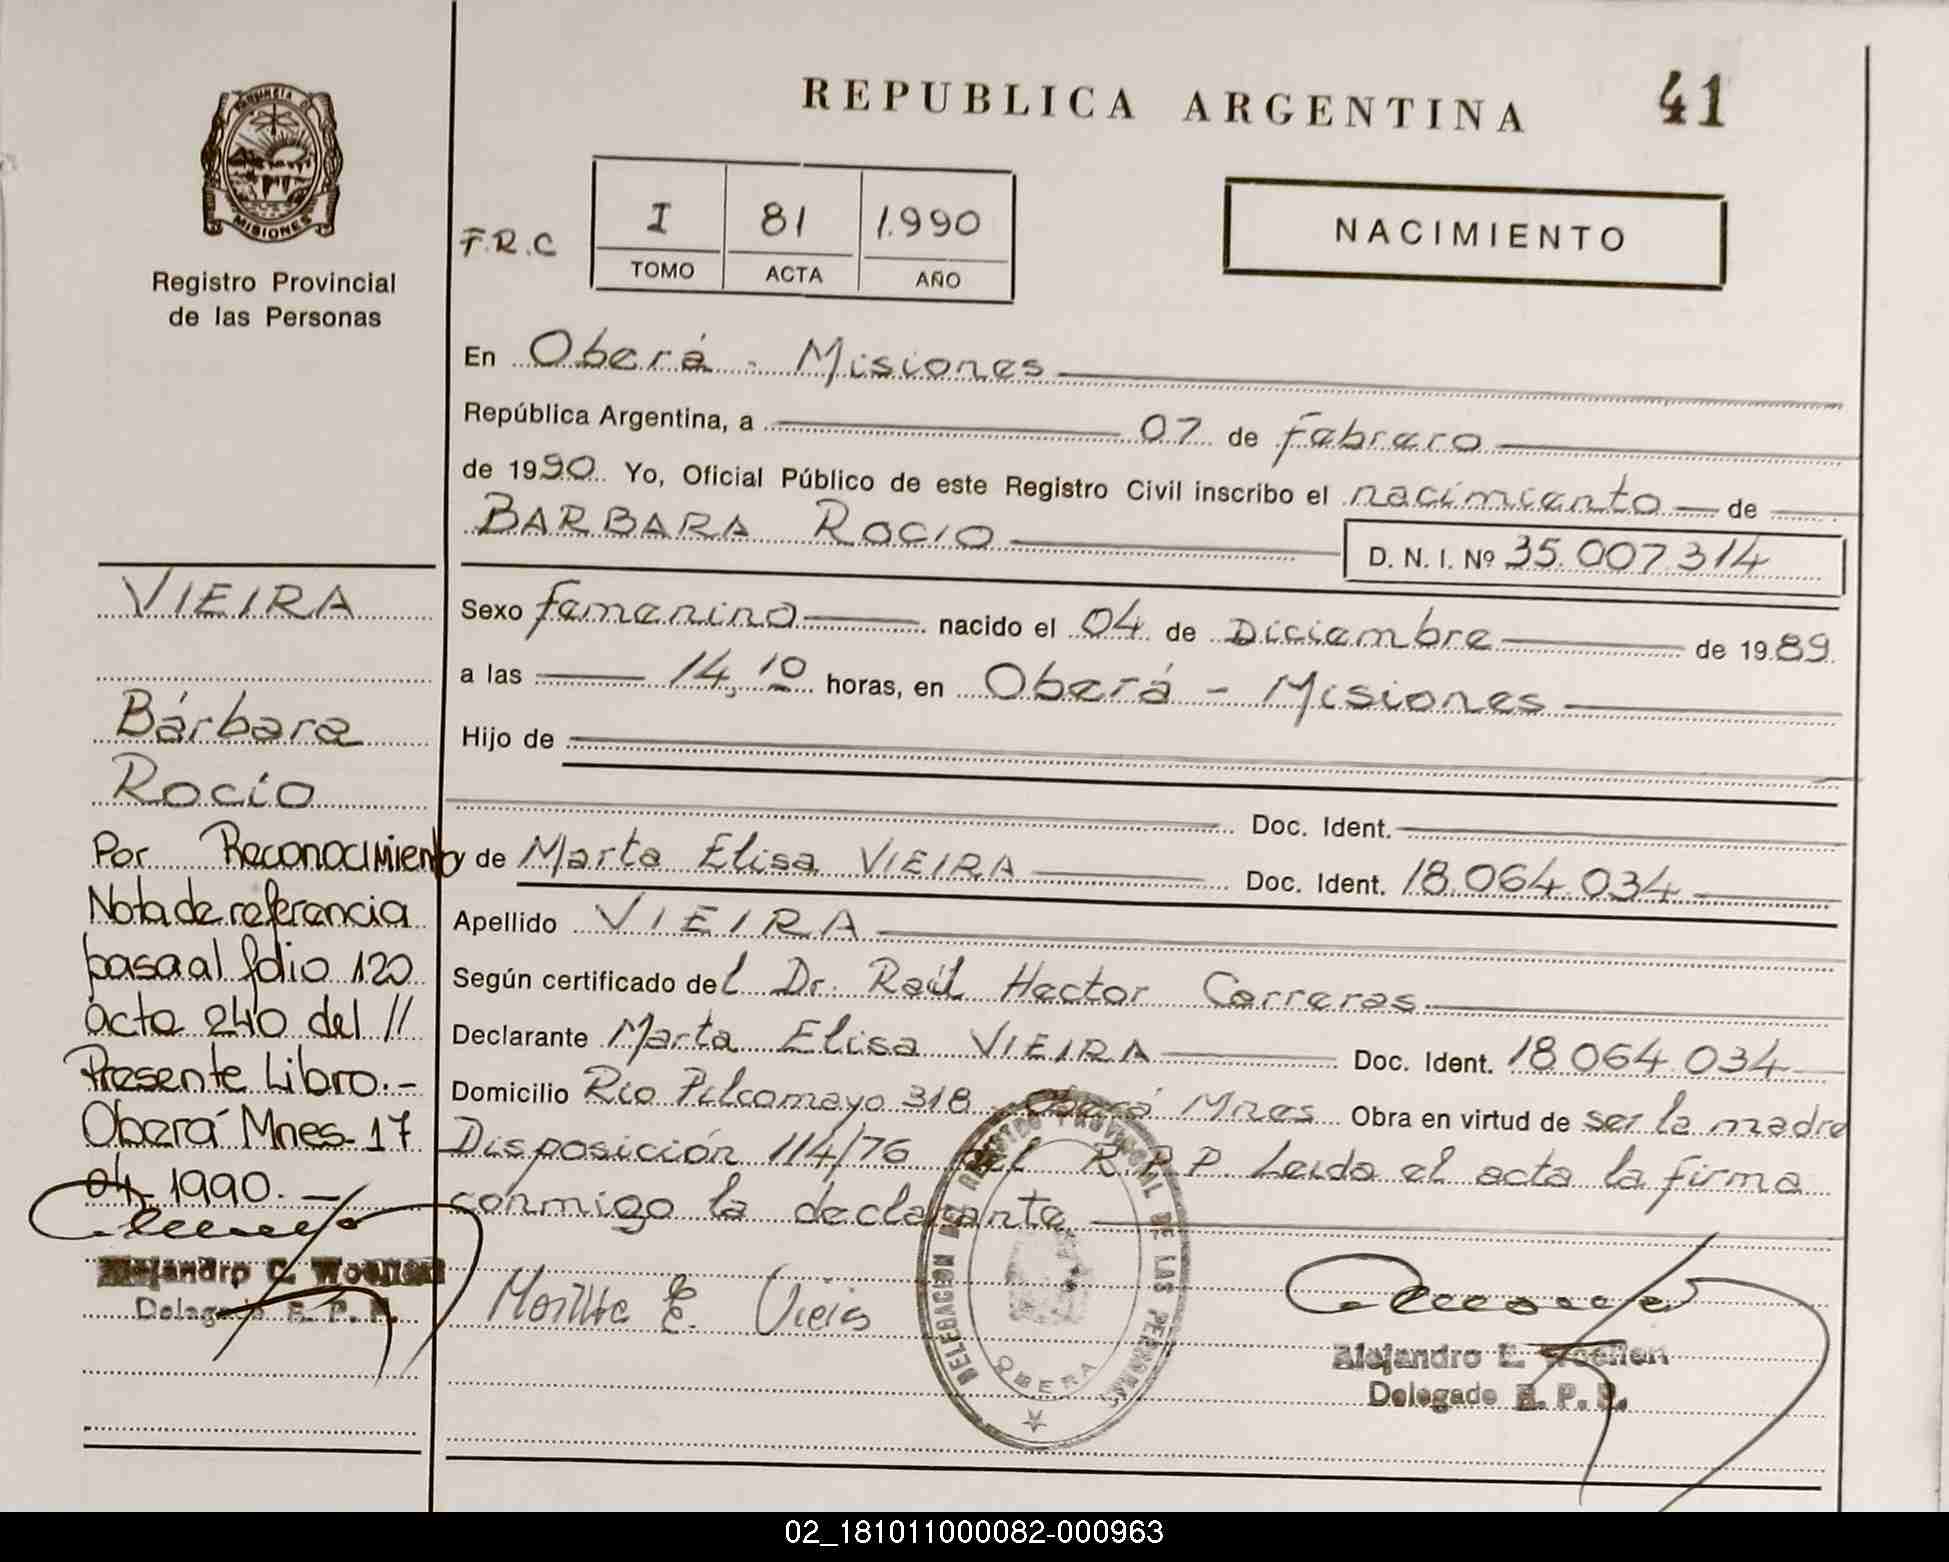 REPUBLICA ARGENTINA 41
PROVINCIA DE
MISIONES
Registro Provincial
de las Personas
F.R.C
I 81 1.990
TOMO ACTA AÑO
NACIMIENTO
En Oberá - Misiones
República Argentina, a 07 de febrero
de 1990 Yo, Oficial Público de este Registro Civil inscribo el nacimiento de
BARBARA ROCIO
D. N. I. Nº 35.007.314
Sexo femenino nacido el 04 de Diciembre de 1989
a las 14,10 horas, en Oberá - Misiones
Hijo de
Doc. Ident.
y de Marta Elisa VIEIRA Doc. Ident. 18.064.034
Apellido VIEIRA
Según certificado del Dr. Raúl Hector Carreras
Declarante Marta Elisa VIEIRA Doc. Ident. 18.064.034
Domicilio Río Pilcomayo 318 - Oberá Mnes Obra en virtud de ser la madre
Disposición 114/76 del R.P.P. Leída el acta la firma
conmigo la declarante
E. Vieira
DELEGACION DEL REGISTRO PROVINCIAL DE LAS PERSONAS
OBERA
Alejandro E. Woellert
Delegado R. P. P.
VIEIRA
Bárbara
Rocío
Por Reconocimiento
Nota de referencia
pasa al folio 120
acta 240 del //
Presente Libro.-
Oberá Mnes-17
04-1990.-
Alejandro E. Woellert
Delegado R. P. P.
02_181011000082-000963